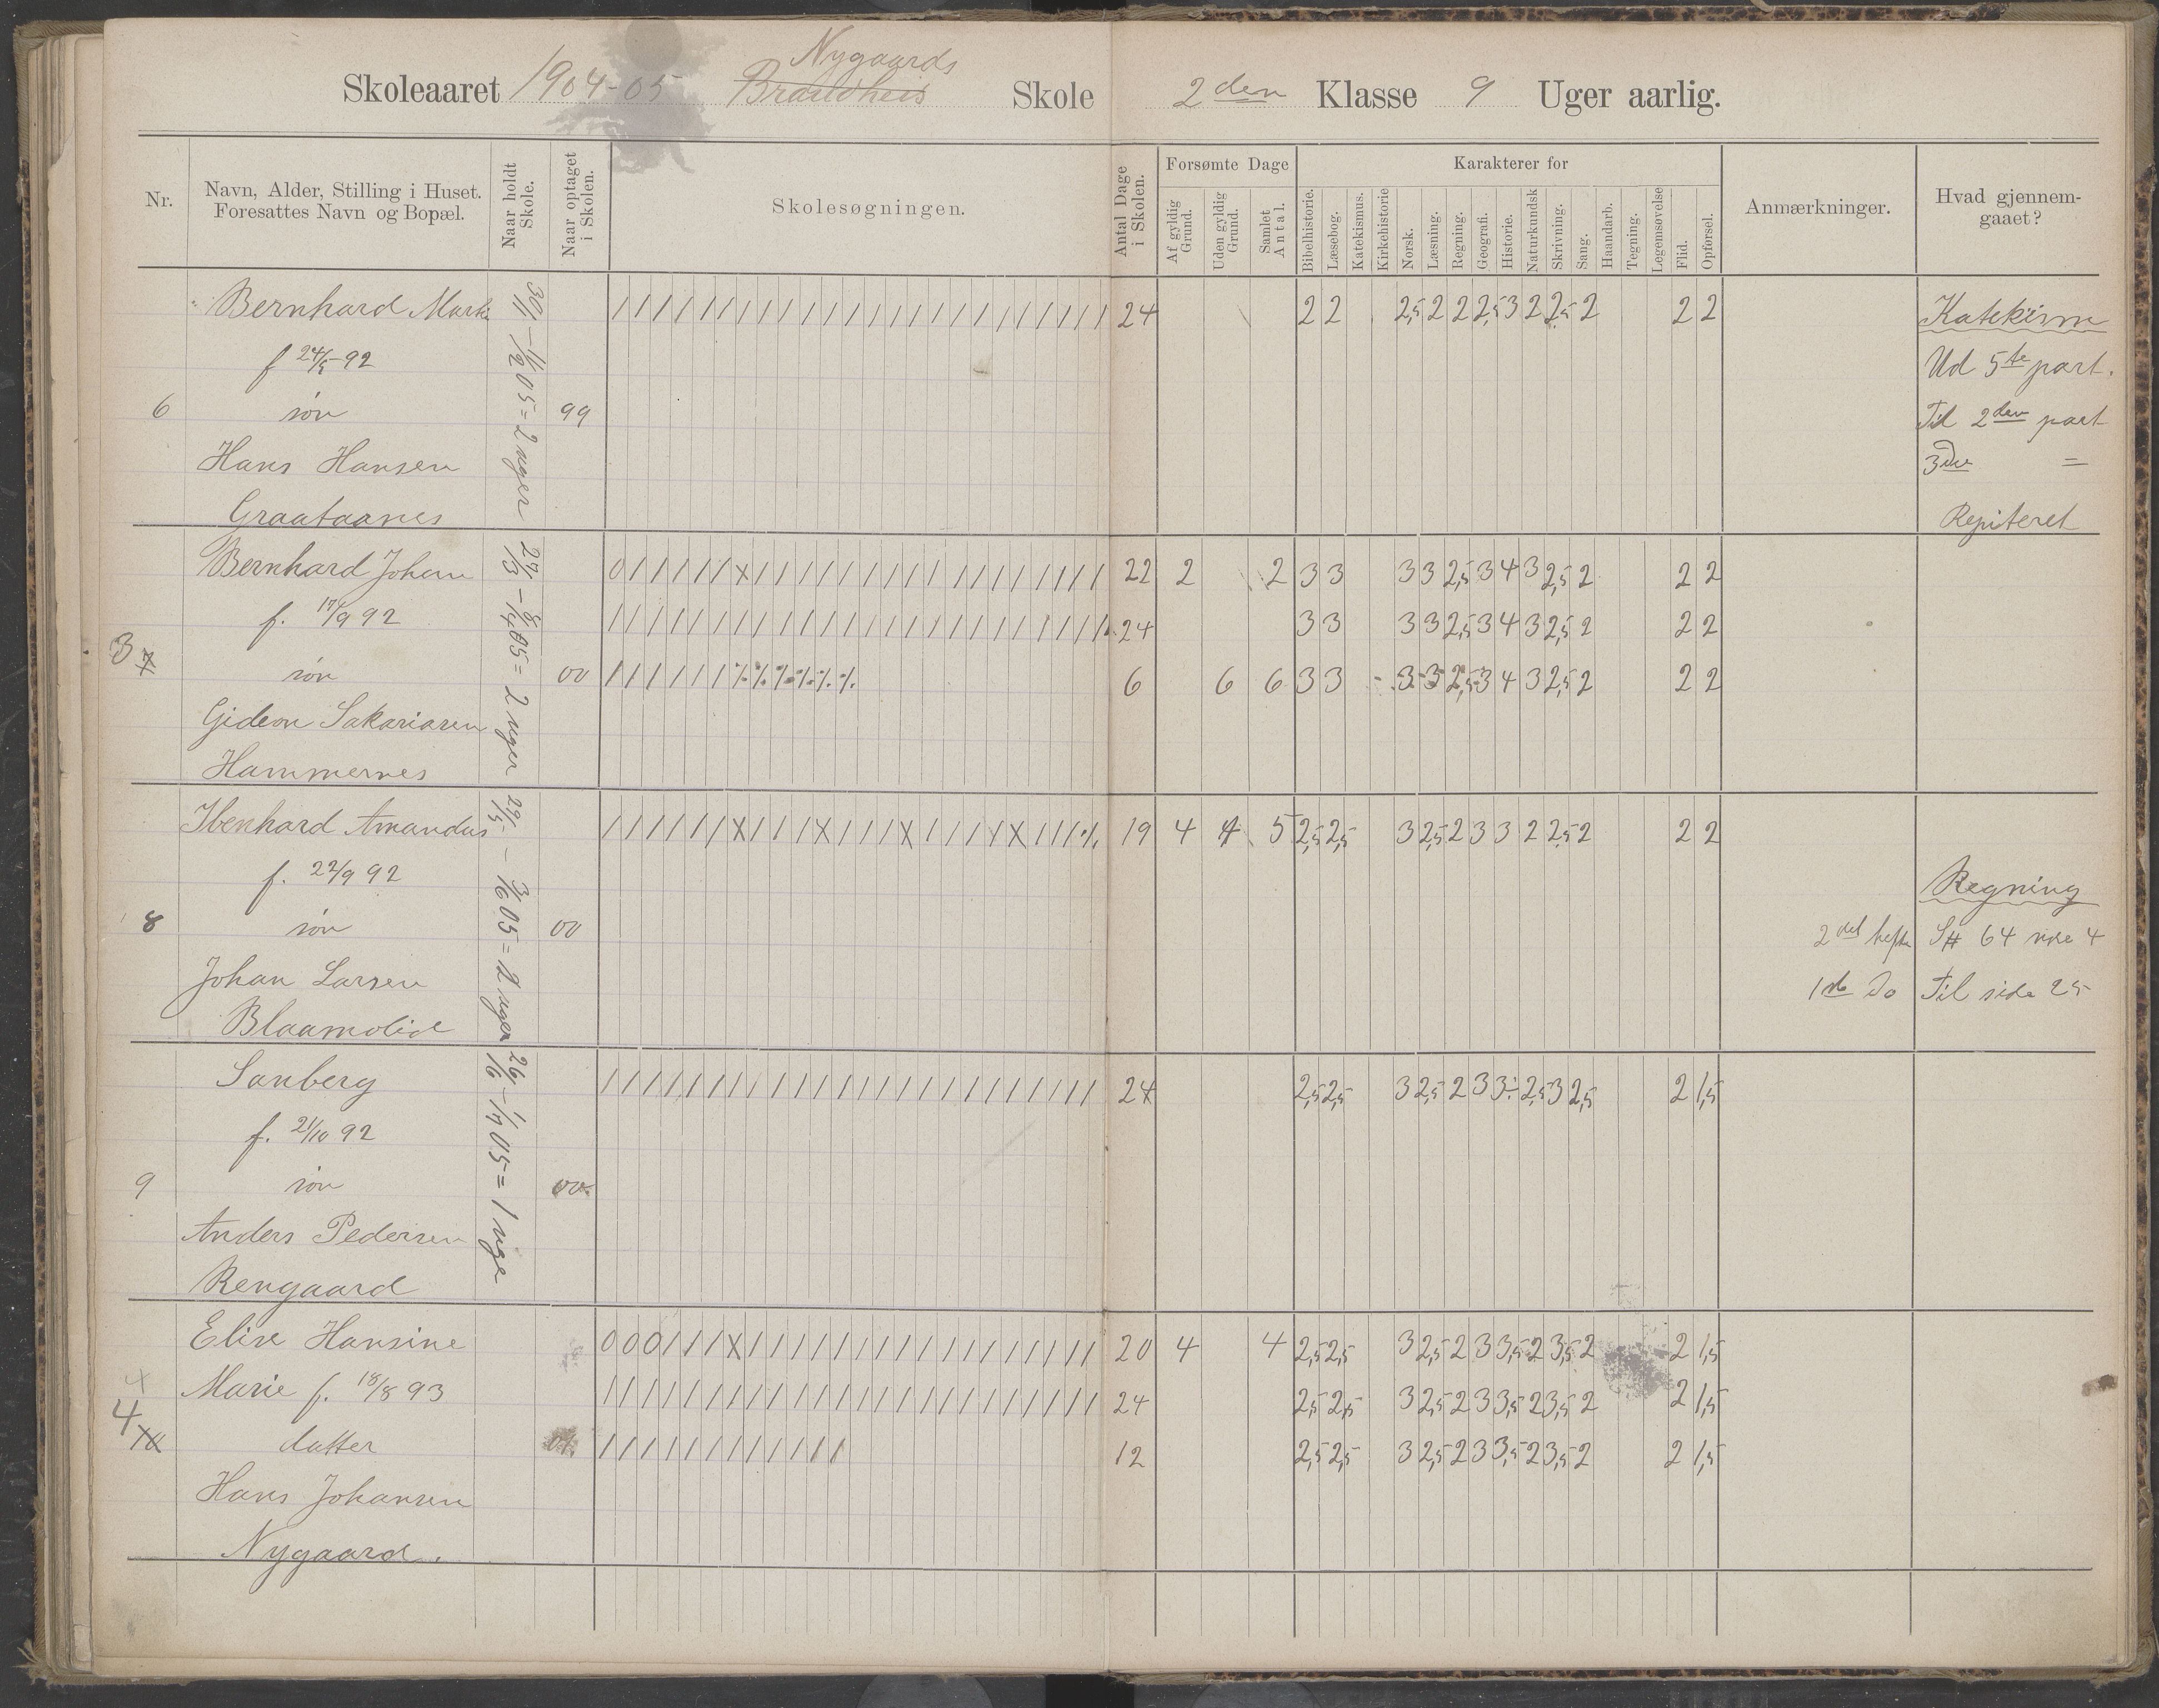 Nygaards
Skoleaaret 1904-05 Brandheis Skole 2den Klasse 9 Uger aarlig.
Nr.
Navn, Alder, Stilling i Huset. Foresattes Navn og Bopæl.
Naar holdt Skole.
Naar optaget i Skolen.
Skolesøgningen.
Antal Dage i Skolen.
Forsømte Dage
Af gyldig Grund.
Uden gyldig Grund.
Samlet Antal.
Karakterer for
Bibelhistorie.
Læsebog.
Katekismus.
Kirkehistorie
Norsk.
Læsning.
Regning.
Geografi.
Historie.
Naturkundsk
Skrivning.
Sang.
Haandarb.
Tegning.
Legemsøvelse
Flid.
Opførsel.
Anmærkninger.
Hvad gjennem-
gaaet?
Bernhard 24 2 2 2,5 2 2 2,5 3 2 2,5 2 2 2 Katekisme
f 24/5-92 Ud 5te part.
6 søn 99 Til 2den part
Hans Hansen 3die =
Graataanes Repiteret
30/1 - 11/2 05 = 2 uger
Bernhard Johan 22 2 2 3 3 3 3 2,5 3 4 3 2,5 2 2 2
f. 17/9 92 24 3 3 3 3 2,5 3 4 3 2,5 2 2 2
3 7 søn 00 6 6 6 3 3 3 3 2,5 3 4 3 2,5 2 2 2
Gideon Sakariasen
Hammernes
27/3 - 8/4 05 = 2 uger
Ibenhard Amandus 19 4 5 2,5 2,5 3 2,5 2 3 3 2 2,5 2 2 2
f. 22/9 92 Regning
8 søn 00 2det hefte 64 side 4
Johan Larsen 1ste Do Til side 25
Blaamolid
29/5 - 3/6 05 = uger
Sanberg 24 2,5 2,5 3 2,5 2 3 3 2,5 3 2,5 2 1,5
f. 21/10 92
9 søn 00
Anders Pedersen
Rengaard
26/6 - 1/7 05 = 1 uge
Elise Hansine 20 4 4 2,5 2,5 3 2,5 2 3 3,5 2 3,5 2 2 1,5
Marie f. 18/8 93 24 2,5 2,5 3 2,5 2 3 3,5 2 3,5 2 2 1,5
4 10 datter 01 12 2,5 2,5 3 2,5 2 3 3,5 2 3,5 2 2 1,5
Hans Johansen
Nygaard.